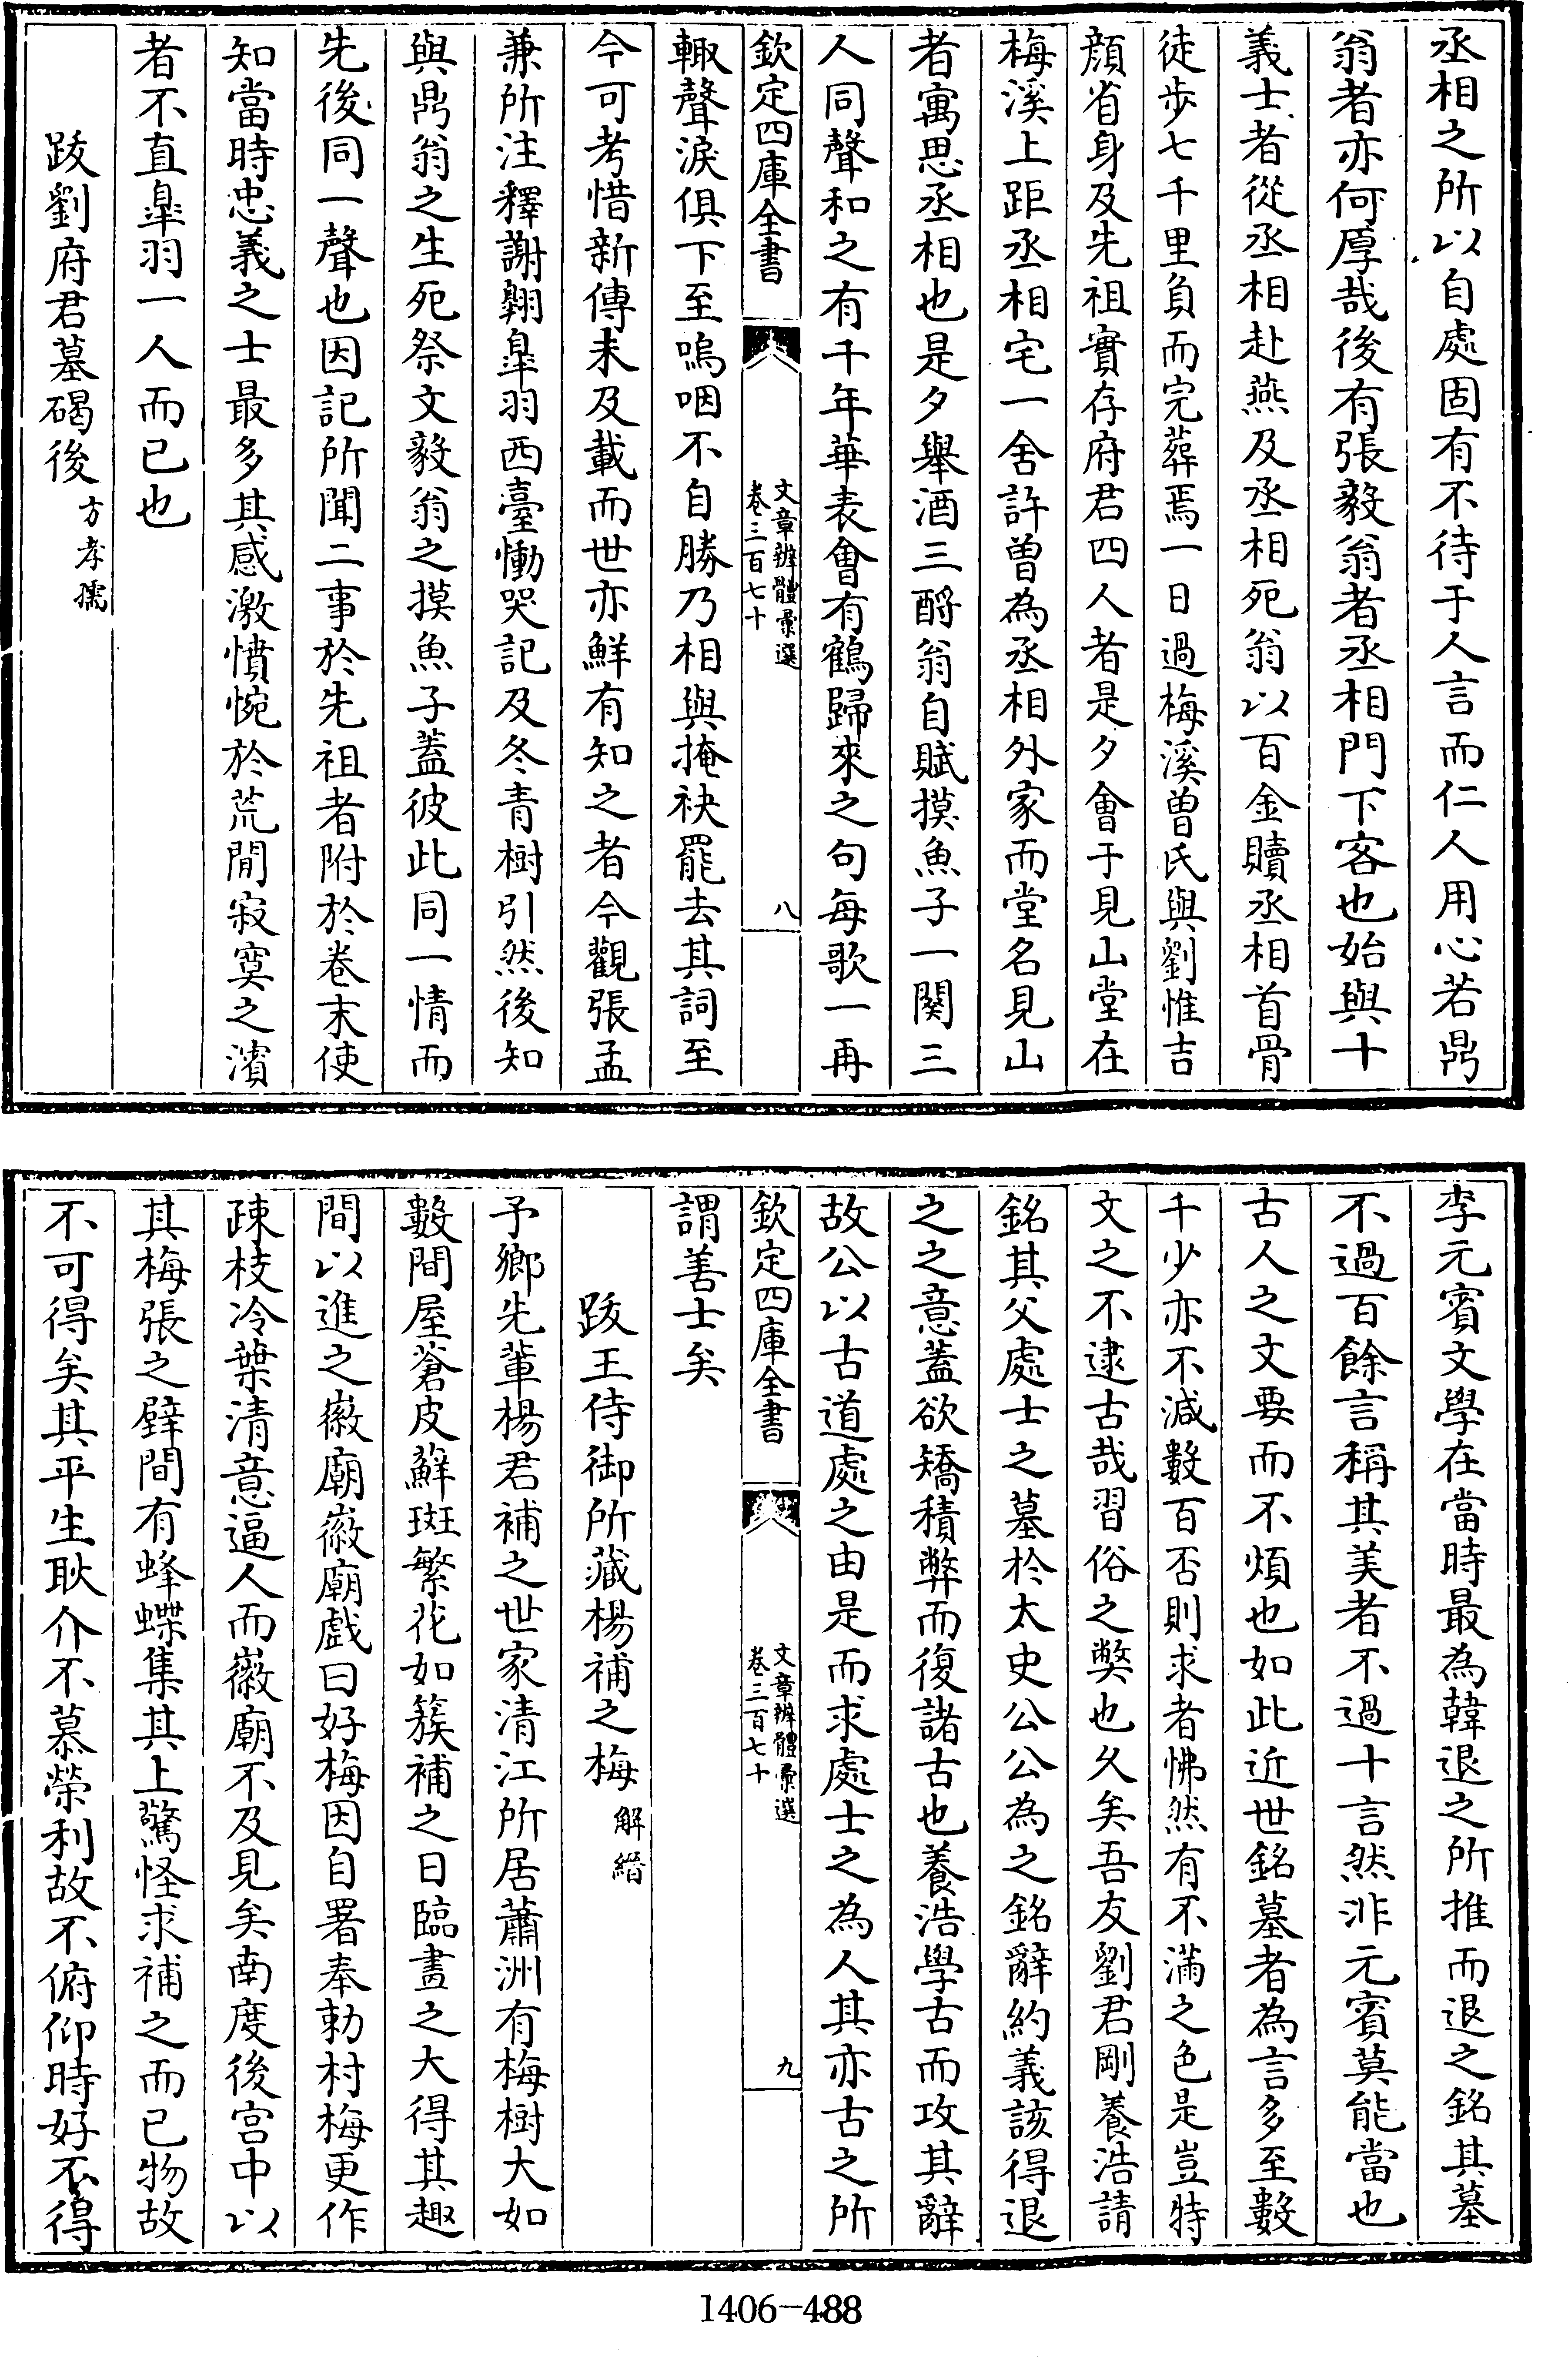 丞相之所以自處固有不待于人言而仁人用心若鼎
翁者亦何厚哉後有張毅翁者丞相門下客也始與十
義士者從丞相赴燕及丞相死翁以百金贖丞相首骨
徒步七千里負而完葬焉一日過梅溪曾氏與劉惟吉
顔省身及先祖實存府君四人者是夕會于見山堂在
梅溪上距丞相宅一舍許曾為丞相外家而堂名見山
者寓思丞相也是夕舉酒三酹翁自賦摸魚子一闋三
人同聲和之有千年華表會有鶴歸來之句每歌一再
欽定四庫全書
文章辨體彚選
卷三百七十
八
輙聲淚俱下至嗚咽不自勝乃相與掩袂罷去其詞至
今可考惜新傳未及載而世亦鮮有知之者今觀張孟
兼所注釋謝翺臯羽西臺慟哭記及冬青樹引然後知
與鼎翁之生死祭文毅翁之摸魚子葢彼此同一情而
先後同一聲也因記所聞二事於先祖者附於卷末使
知當時忠義之士最多其感激憤惋於荒閒寂寞之濱
者不直臯羽一人而已也
跋劉府君墓碣後
方孝孺
李元賓文學在當時最為韓退之所推而退之銘其墓
不過百餘言稱其美者不過十言然非元賓莫能當也
古人之文要而不煩也如此近世銘墓者為言多至數
千少亦不減數百否則求者怫然有不滿之色是豈特
文之不逮古哉習俗之獘也久矣吾友劉君剛養浩請
銘其父處士之墓於太史公公為之銘辭約義該得退
之之意蓋欲矯積弊而復諸古也養浩學古而攻其辭
故公以古道處之由是而求處士之為人其亦古之所
欽定四庫全書
文章辨體彚選
卷三百七十
九
謂善士矣
跋王侍御所藏楊補之梅
解縉
予鄉先輩楊君補之世家清江所居蕭洲有梅樹大如
數間屋蒼皮蘚斑繁花如簇補之日臨畫之大得其趣
間以進之徽廟徽廟戲曰好梅因自署奉勅村梅更作
疎枝冷葉清意逼人而徽廟不及見矣南度後宫中以
其梅張之壁間有蜂蝶集其上驚怪求補之而已物故
不可得矣其平生耿介不慕榮利故不俯仰時好不得
1406-488